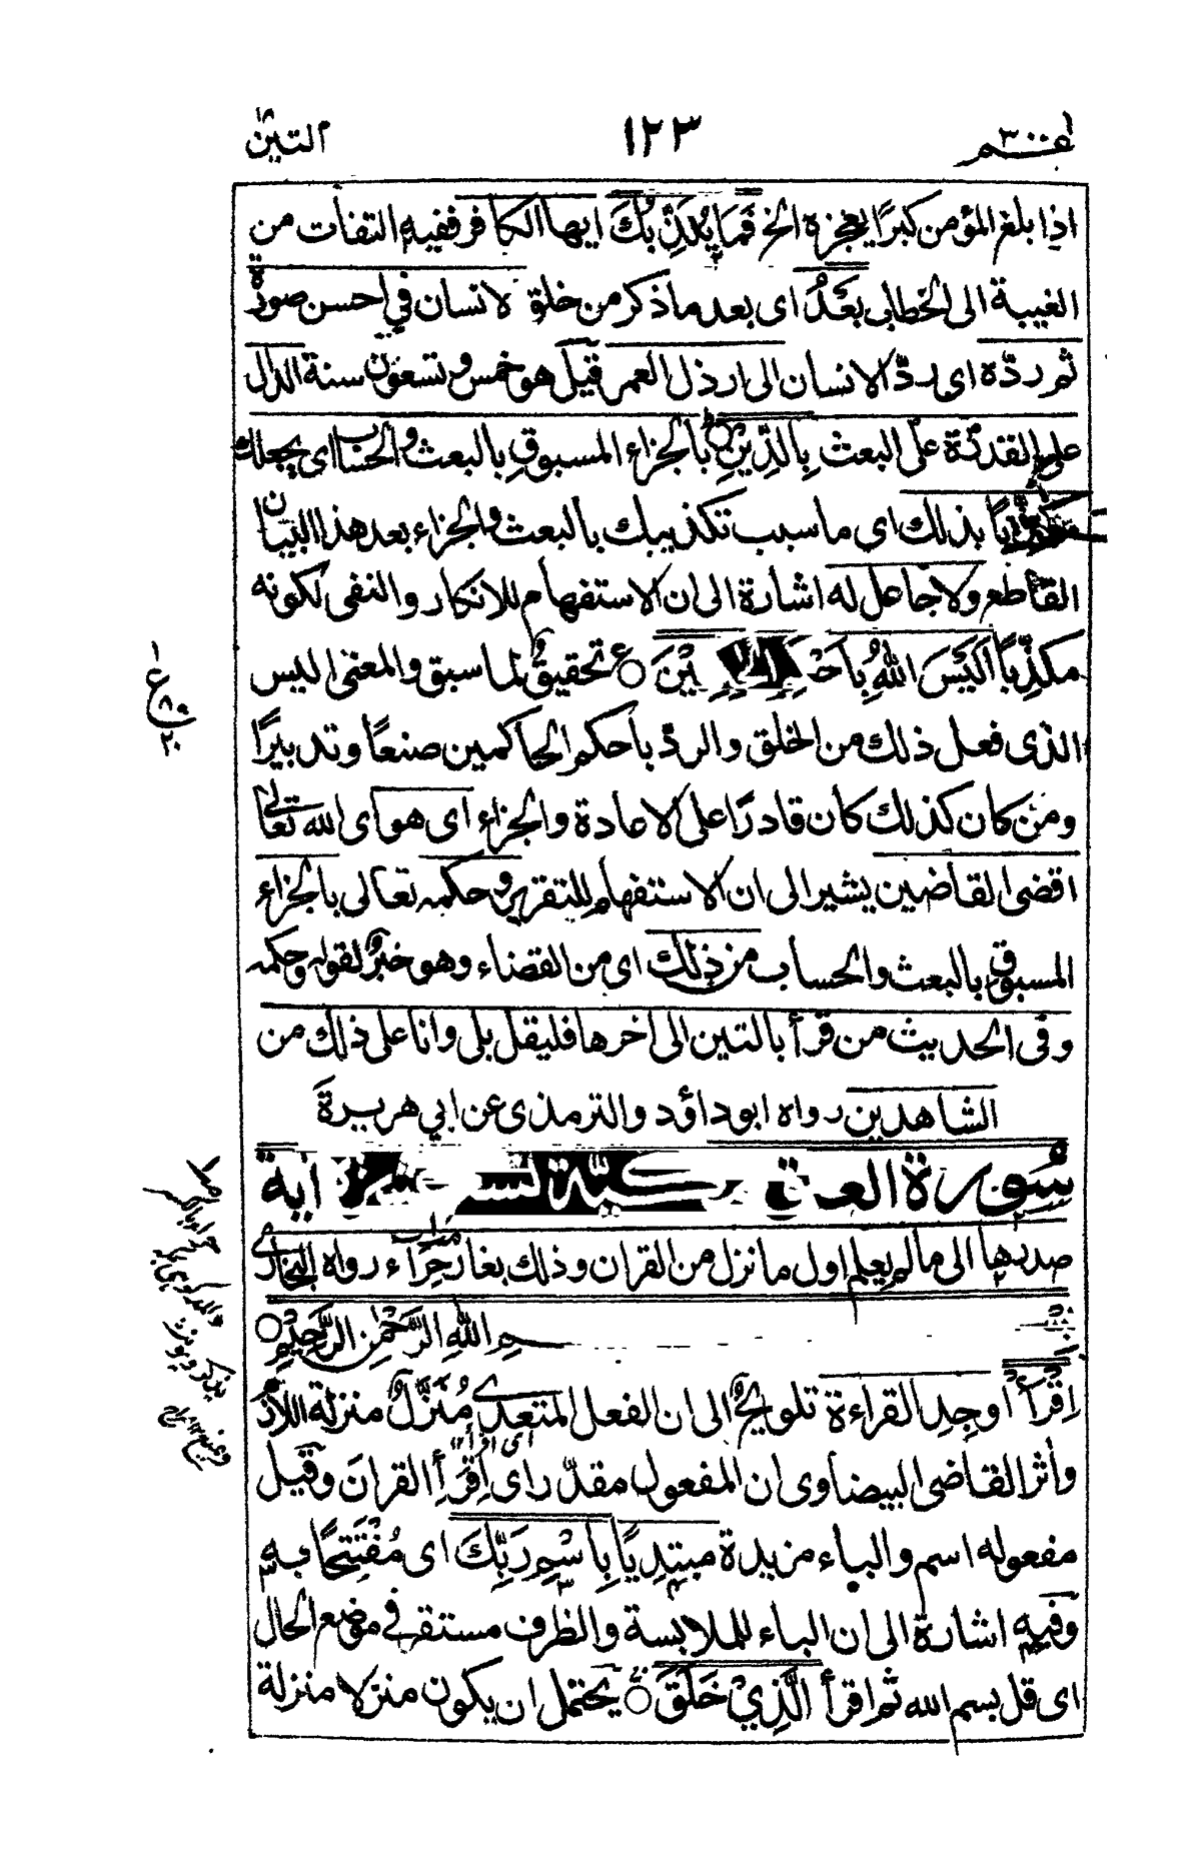 التين
١٢٣
عم ٣٠
اذا بلغ المؤمن كبرًا يعجزه الخ فَمَا يُكَذِّبُكَ ايها الكافر ففيه التفات من
الغيبة الى الخطاب بَعْدُ اى بعد ما ذكر من خلق لانسان في احسن صورة
ثم ردّه اى ردّ الانسان الى ارذل العمر قيل هو خمس وتسعون سنة الدال
على القدرة على البعث بِالدِّيْنِ بالجزاء المسبوق بالبعث والحساب اى يجعلك
مكذّبًا بذلك اى ما سبب تكذيبك بالبعث والجزاء بعد هذا التبيان
القاطع ولا جاعل له اشارة الى ان الاستفهام للانكار والنفى لكونه
مكذِّبًا اَلَيْسَ اللّٰهُ بِاَحْ يْنَ ○ ع تحقيق لما سبق والمعنى اليس
الذى فعل ذلك من الخلق والرد باحكم الحاكمين صنعًا وتدبيرًا
ومن كان كذلك كان قادرًا على الاعادة والجزاء اى هو اى الله تعالى
اقضى القاضين يشير الى ان الاستفهام للتقرير وحكمه تعالى بالجزاء
المسبوق بالبعث والحساب من ذلك اى من القضاء وهو خبر لقوله وحكمه
وفى الحديث من قرأ بالتين الى اخرها فليقل بلى وانا على ذلك من
الشاهدين رواه ابوداؤد والترمذى عن ابي هريرة
سُورة الع ق كيّة تس اية
صدرها الى ما لم يعلم اول ما نزل من القران وذلك بغار حِرَاء رواه البخارى
ـسمِ اللّٰهِ الرَّحْمٰنِ الرَّحِيْمِ ○
اِقْرَأْ اوجِدِ القراءة تلويح الى ان الفعل المتعدى مُنَزَّل منزلة اللازم
واثر القاضى البيضاوى ان المفعول مقدّر اى اِقْرَأِ القرانَ وقيل
مفعوله اسم والباء مزيدة مبتدِيًا بِاسْمِ رَبِّكَ اى مُفْتَتِحًا به
وفيه اشارة الى ان الباء للملابسة والظرف مستقر في موضع الحال
اى قل بسم الله ثم اقرأ الَّذِيْ خَلَقَ ○ يحتمل ان يكون منزلا منزلة